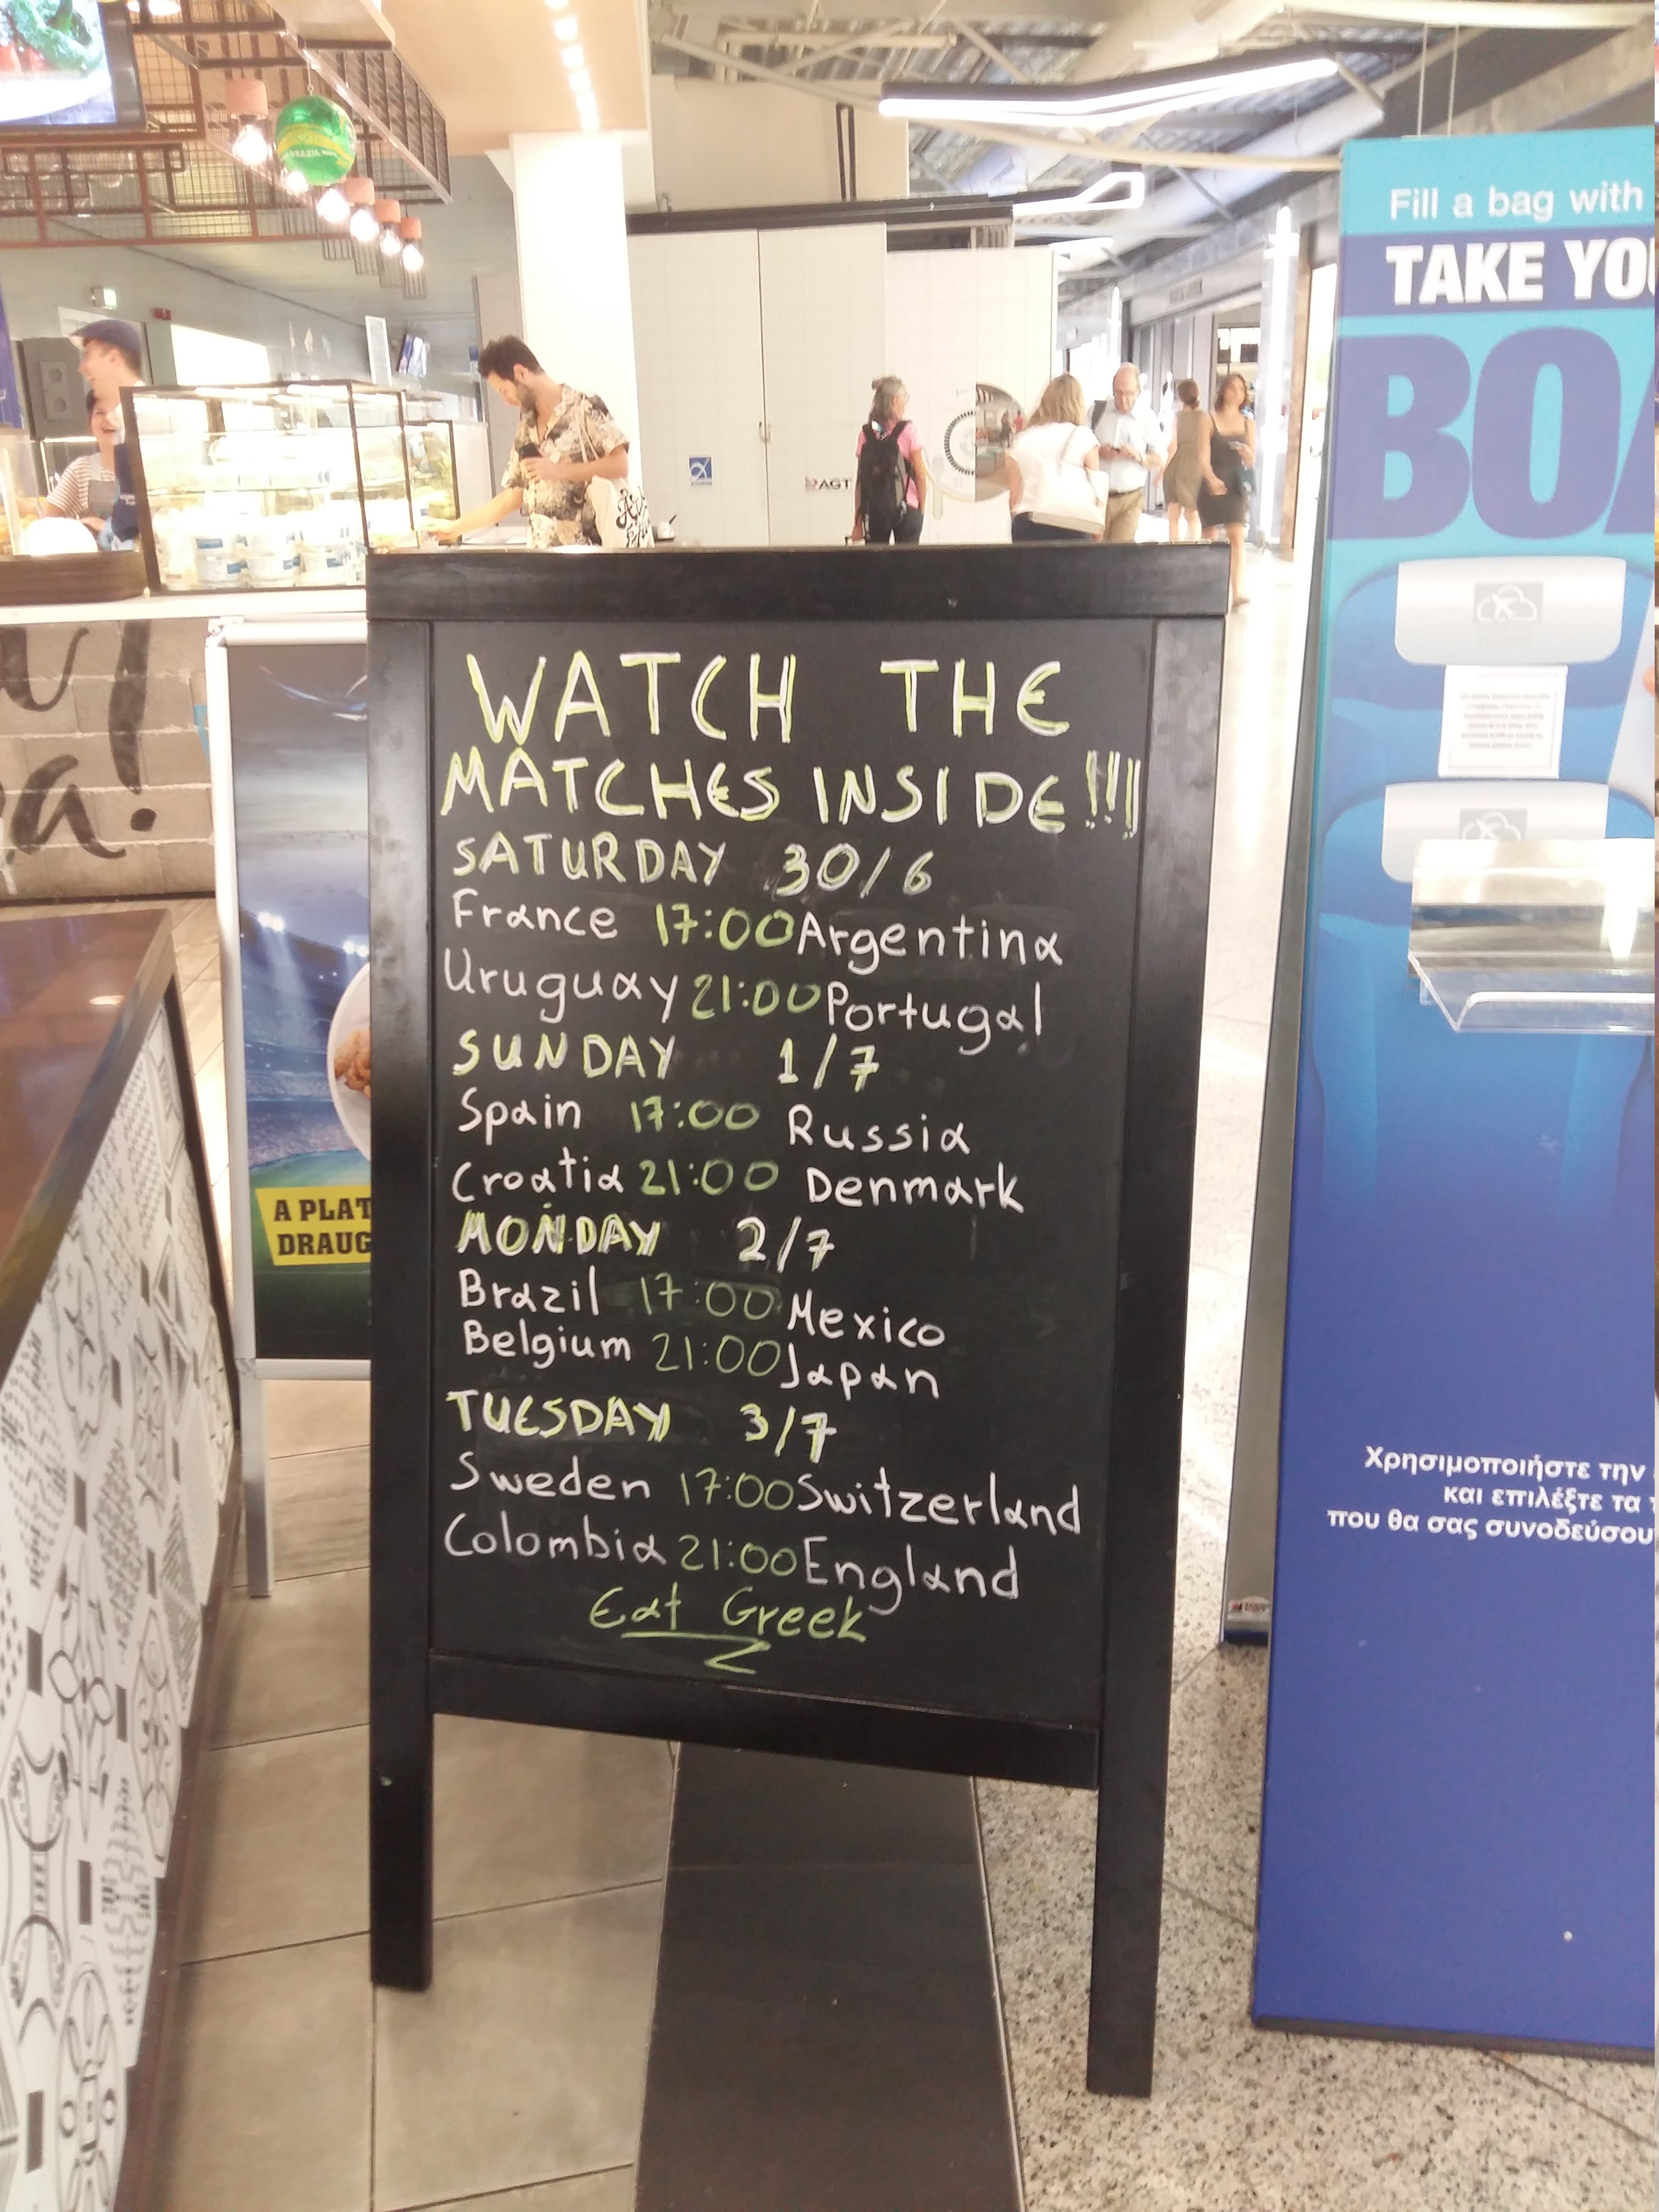 WATCH THE
MATCHES INSIDE!!!
SATURDAY 30/6
France 17:00 Argentina
Uruguay 21:00 Portugal
SUNDAY 1/7
Spain 17:00 Russia
Croatia 21:00 Denmark
MONDAY 2/7
Brazil 17:00 Mexico
Belgium 21:00 Japan
TUESDAY 3/7
Sweden 17:00 Switzerland
Colombia 21:00 England
Eat Greek
A PLAT
DRAUG
AGT
Fill a bag with
TAKE YOU
BOA
Χρησιμοποιήστε την
και επιλέξτε τα
που θα σας συνοδεύσου